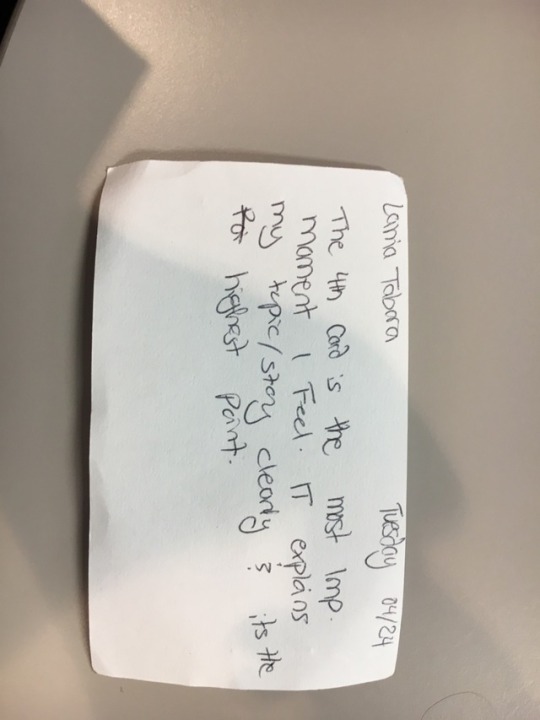 Lamia Tabara Tuesday 04/24
The 4th Card is the most Imp.
moment I Feel. IT explains
my topic/story clearly & its the
highest Point.